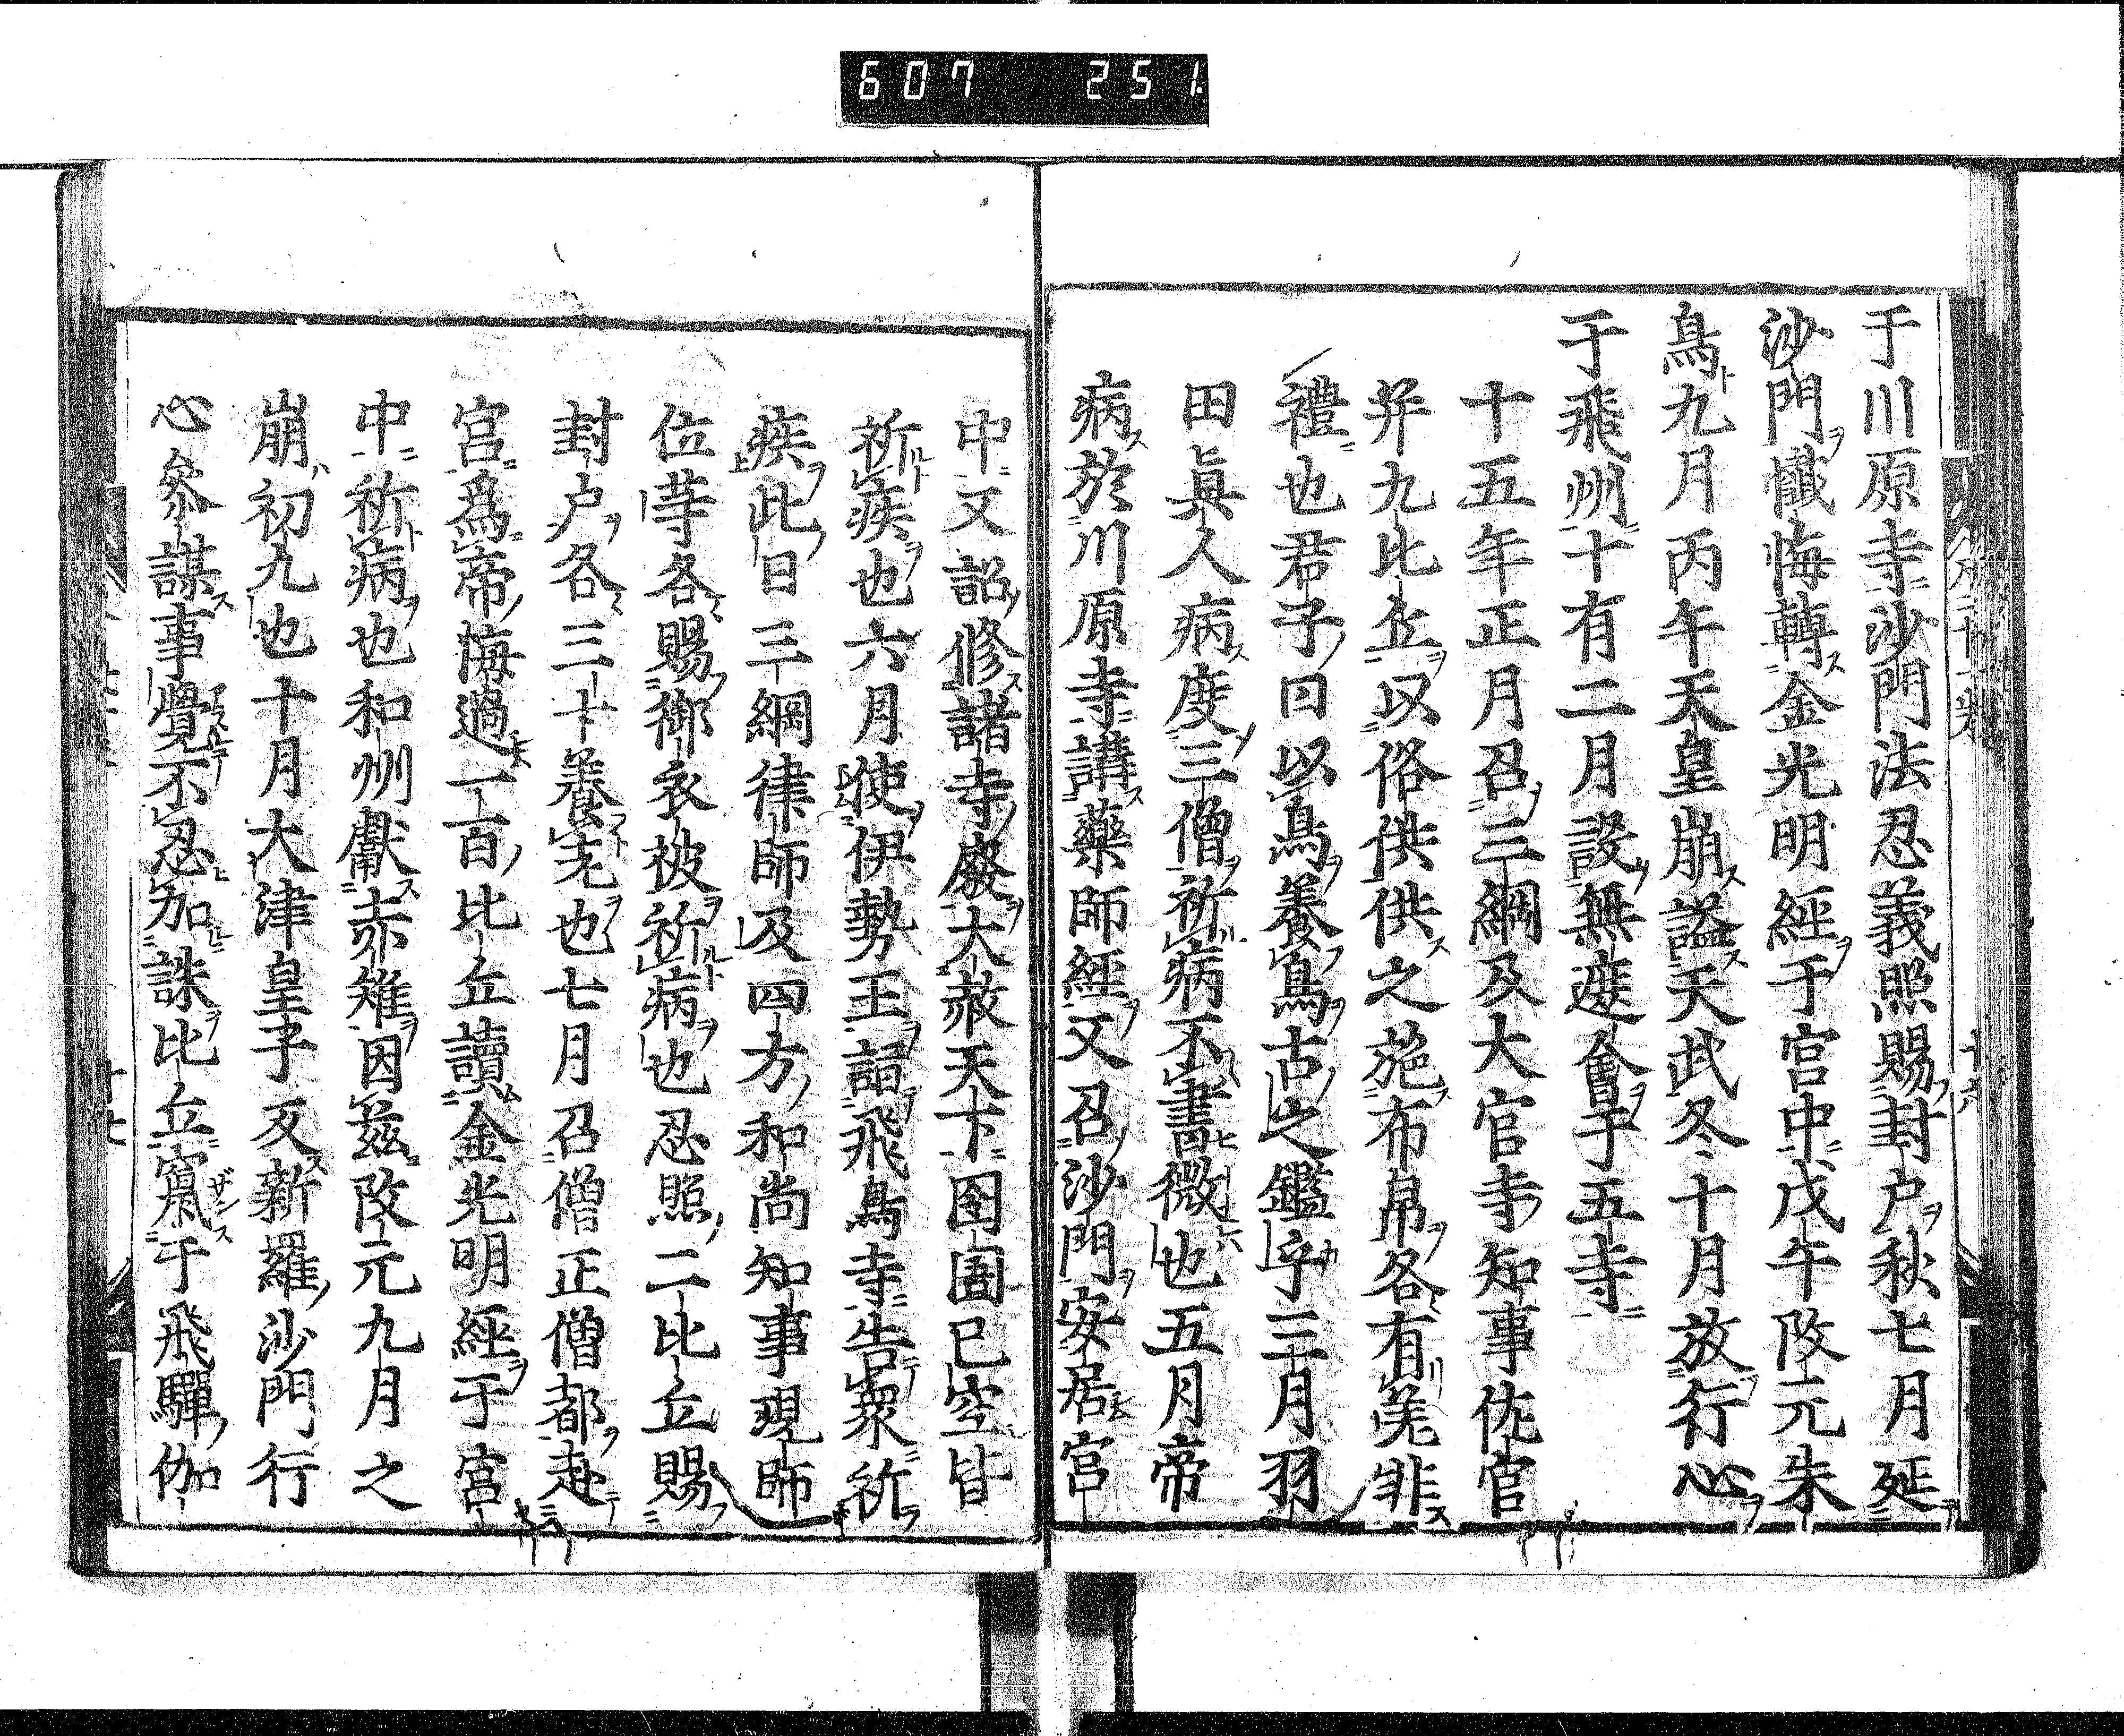 607 251
于川原寺沙門法忍義照賜封户秋七月延
沙門懺悔轉金光明經于宮中戊午改元朱
鳥九月丙午天皇崩謚天武冬十月放行心
于飛州十有二月設無遮會于五寺
十五年正月召三綱及大官寺知事佐官
并九比丘以俗供供之施布帛各有羌非
禮也君子曰以鳥養養鳥古之鑑乎三月羽
田眞人病度三僧祈病不書微也五月帝
病於川原寺講藥師經又召沙門安居宮
中又詔修諸寺廢大赦天下囹圄已空皆
祈疾也六月使伊勢王詣飛鳥寺告衆祈
疾此日三綱律師及四方和尚知事現師
位等各賜御衣被祈病也忍照二比丘賜
封户各三十養老也七月召僧正僧都赴
宮爲帝悔過一百比丘讀金光明經于宮
中祈病也和州獻赤雉因茲改元九月之
崩初九也十月大津皇子反新羅沙門行
心參謀事覺不忍加誅比丘竄于飛驒伽